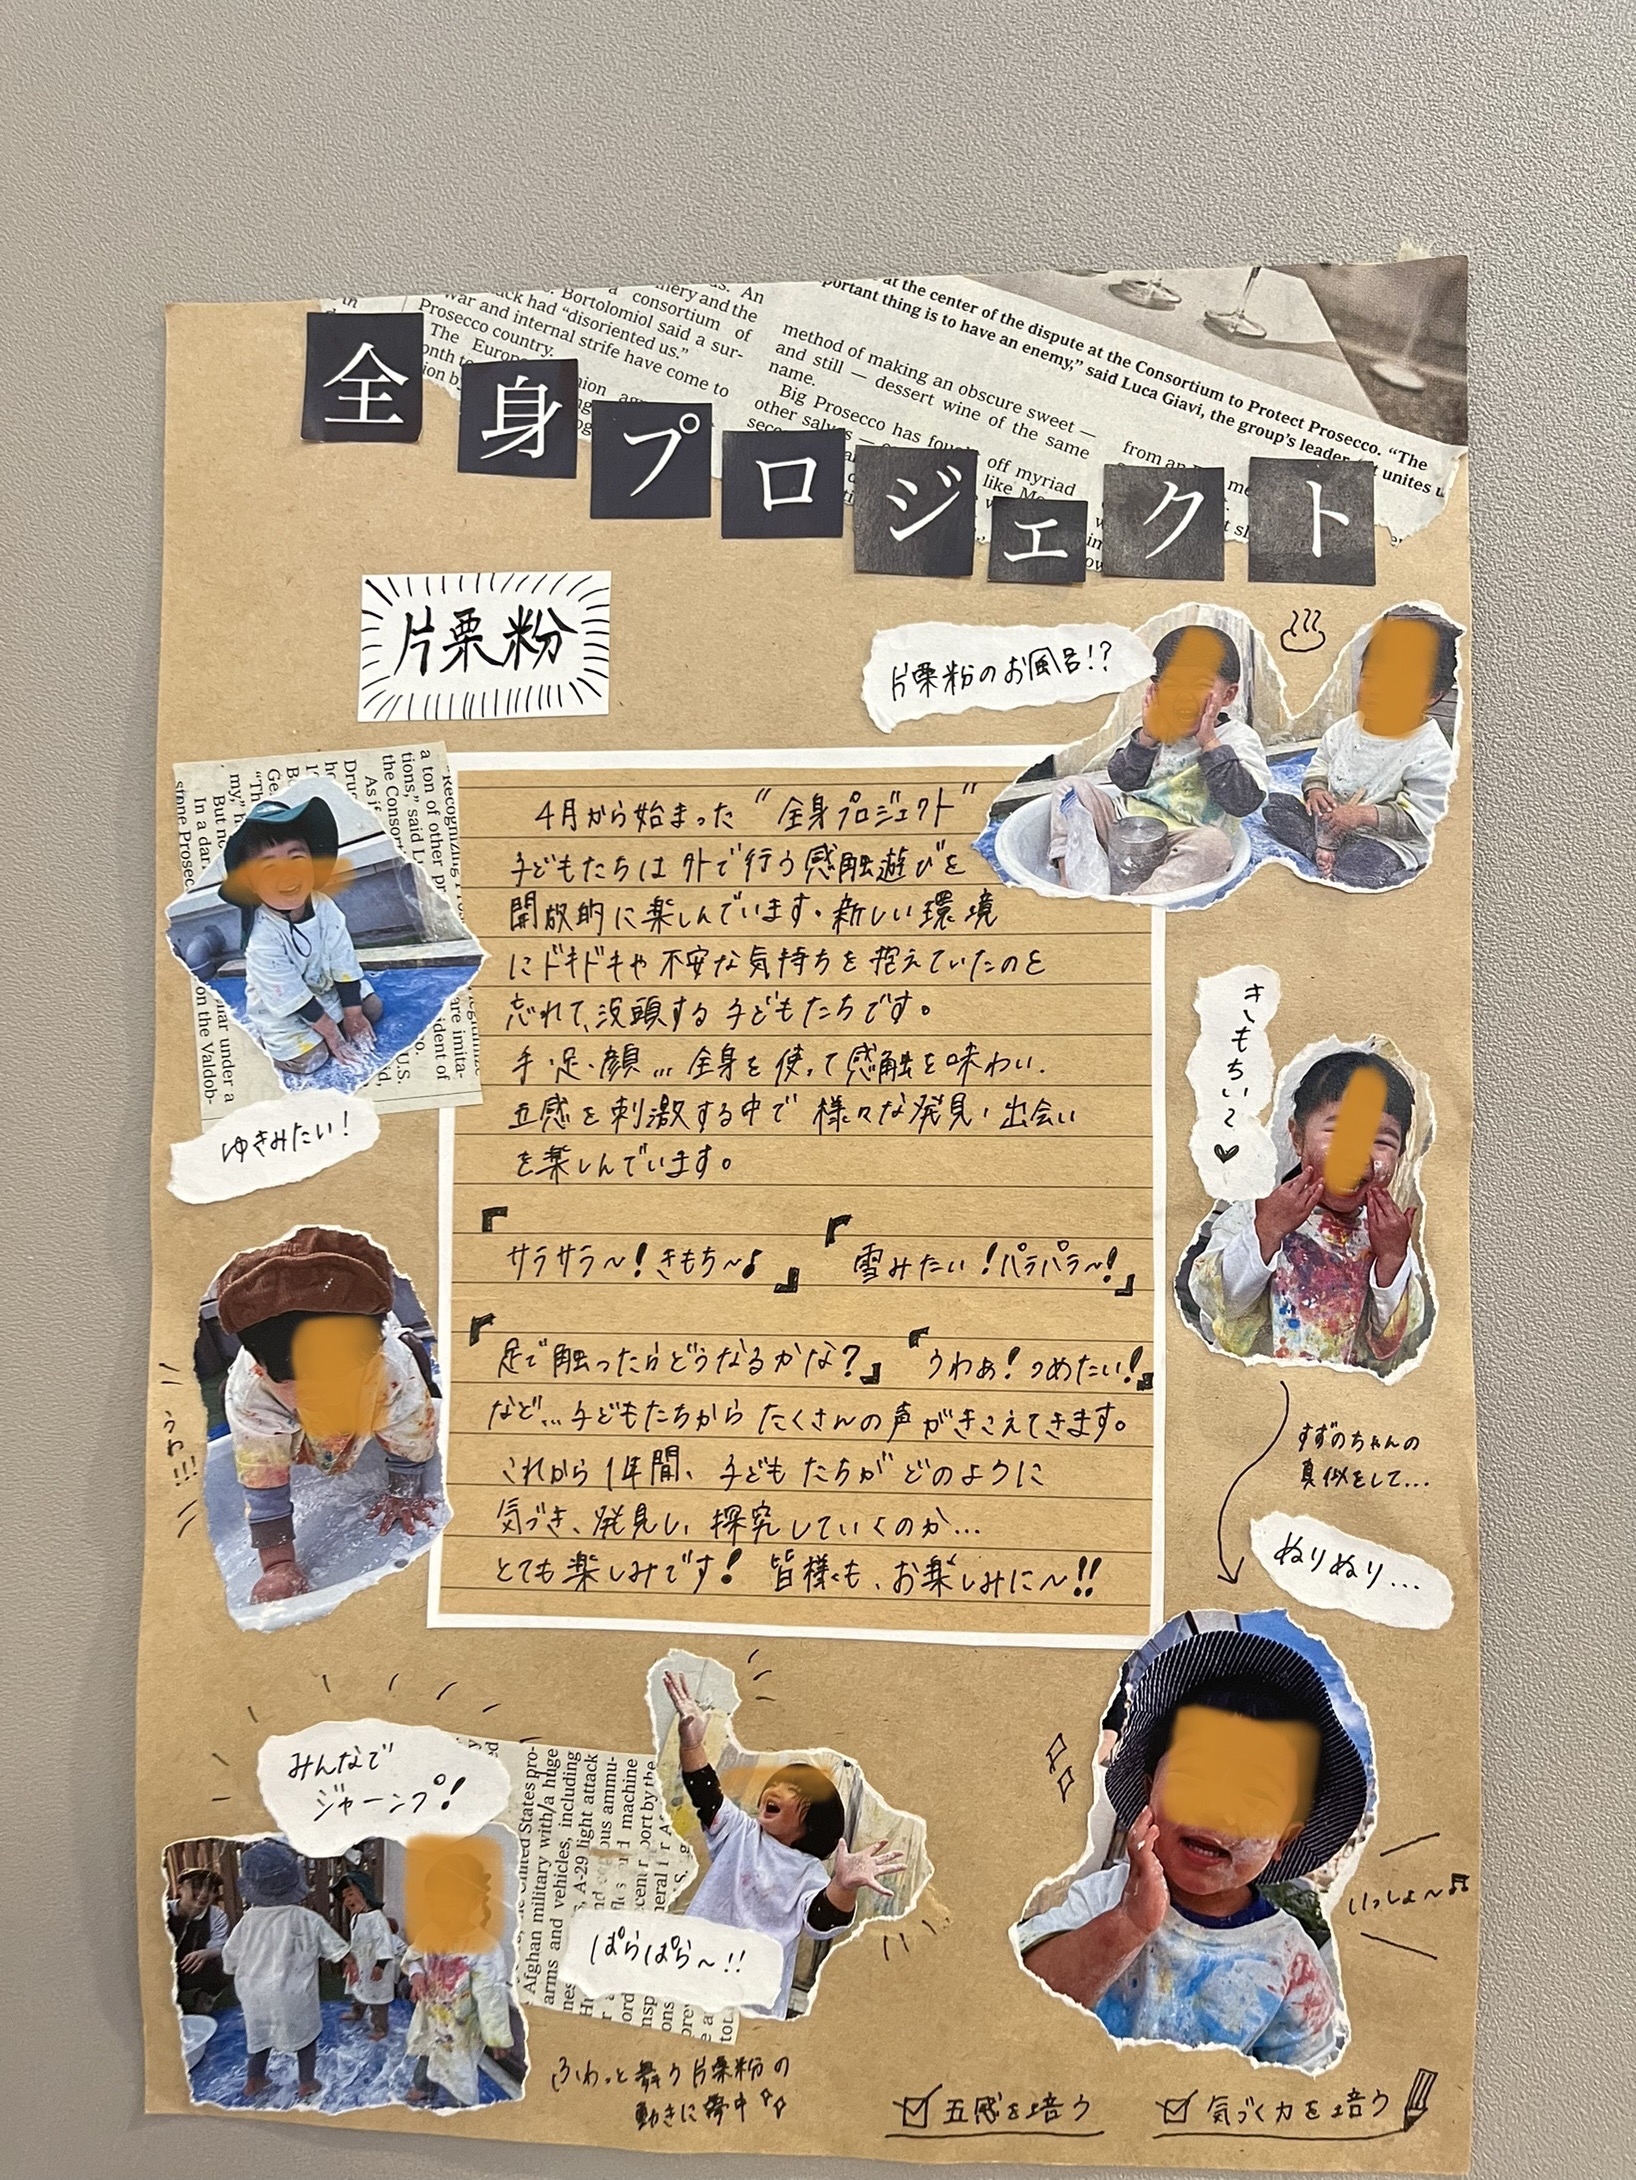 全身プロジェクト
片栗粉
片栗粉のお風呂!?
4月から始まった“全身プロジェクト”
子どもたちは外で行う感触遊びを
開放的に楽しんでいます。新しい環境
にドキドキや不安な気持ちを抱えていたのを
忘れて、没頭する子どもたちです。
手・足・顔…全身を使って感触を味わい、
五感を刺激する中で様々な発見・出会い
を楽しんでいます。
『サラサラ〜!きもち〜♪』『雪みたい!パラパラ〜!』
『足で触ったらどうなるかな?』『うわぁ!つめたい!』
など…子どもたちからたくさんの声がきこえてきます。
これから1年間、子どもたちがどのように
気づき、発見し、探究していくのか…
とても楽しみです!皆様も、お楽しみに〜!!
ゆきみたい!
うわ!!!
きもちい〜♥
すずのちゃんの
真似をして…
ぬりぬり…
いっしょ〜♫
みんなで
ジャーンプ!
ぱらぱら〜!!
ふわっと舞う片栗粉の
動きに夢中
☑五感を培う
☑気づく力を培う
at the center of the dispute at the Consortium to Protect Prosecco. “The
portant thing is to have an enemy,” said Luca Giavi, the group’s leader
method of making an obscure sweet —
and still — dessert wine of the same
name.
Big Prosecco has
off myriad
Bortolomiol said a
consortium of
ack had “disoriented us.”
War and internal strife have come to
Prosecco country.
Afghan military with a huge
arms and vehicles, including
A-29 light attack